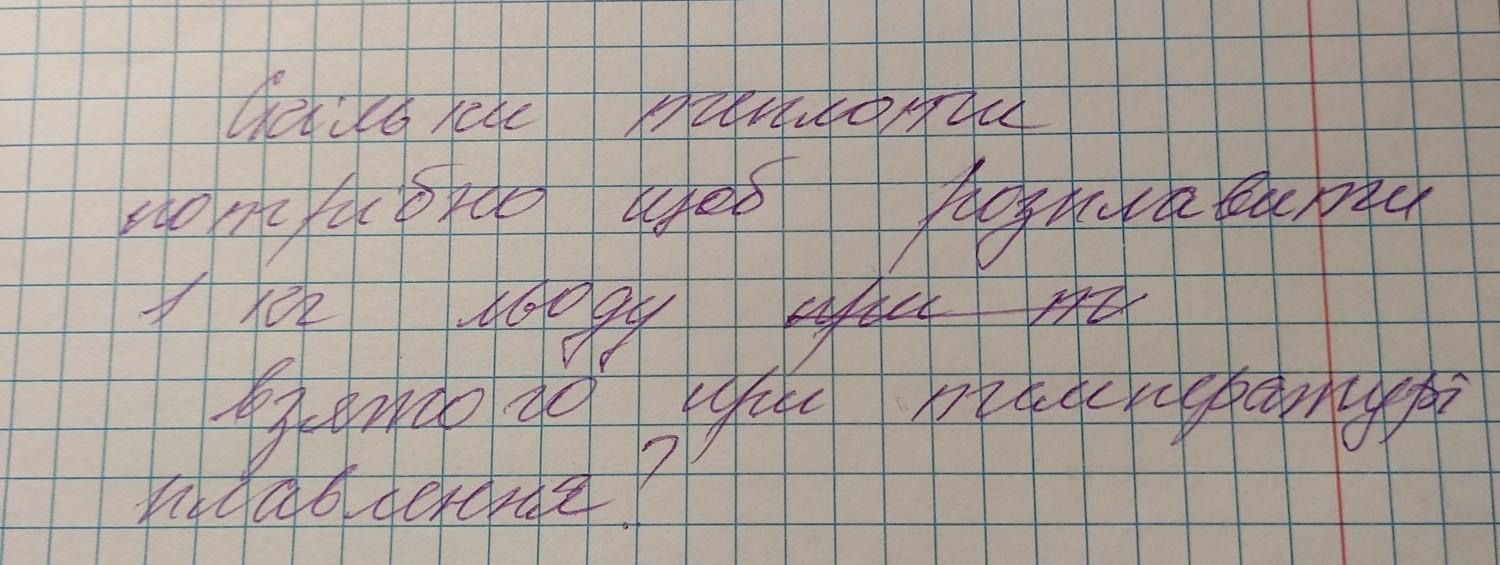 Скільки теплоти
потрібно щоб розплавити
1 кг льоду при т
взятого при температурі
плавлення?